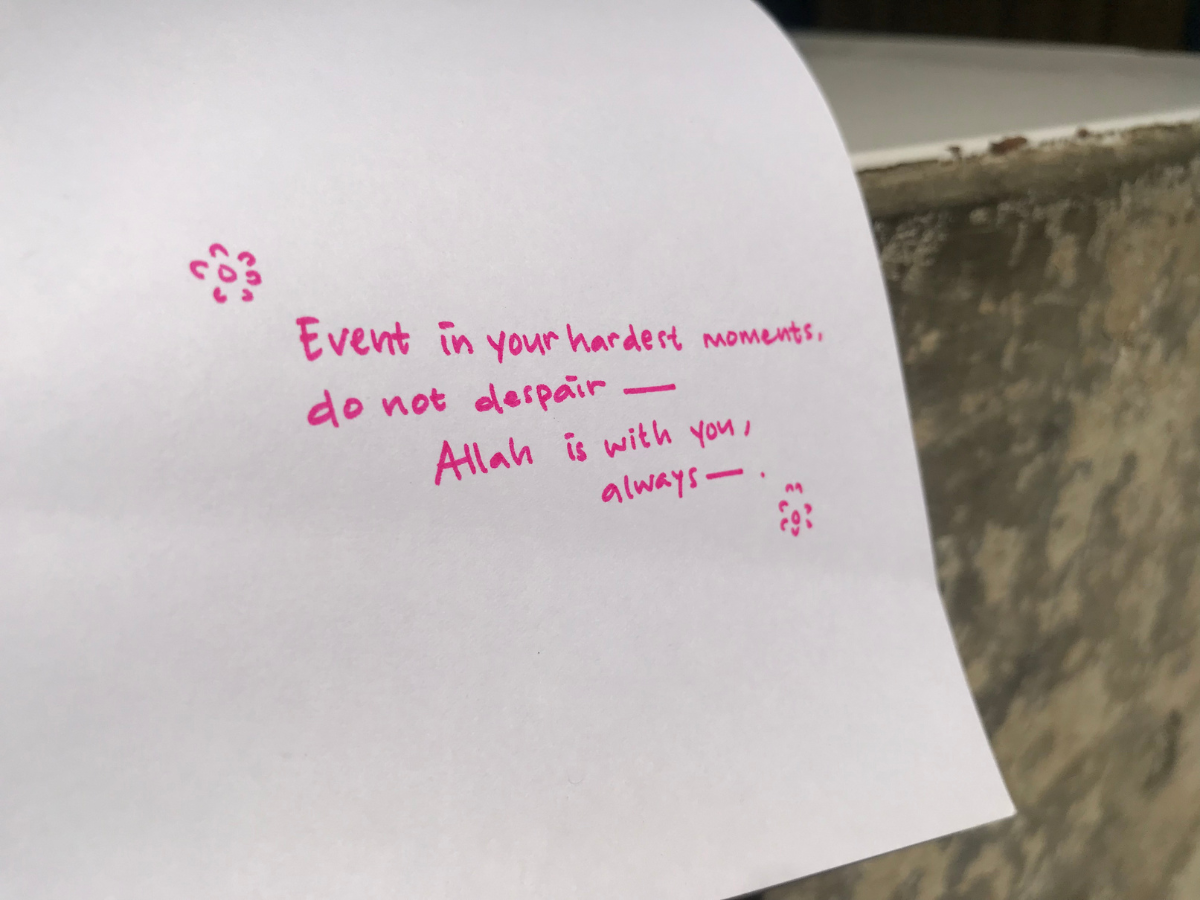 Event in your hardest moments,
do not despair —
Allah is with you,
always — .